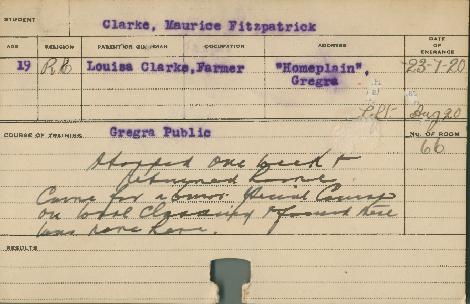 STUDENT
Clarke, Maurice Fitzpatrick
AGE RELIGION PARENT OR GUARDIAN OCCUPATION ADDRESS DATE OF ENTRANCE
19 RC Louisa Clarke, Farmer "Homeplain", 23-7-20
Gregra
Left Aug 20
COURSE OF TRAINING. Gregra Public No. OF ROOM
66
Stopped one week &
returned home.
Came for a Special Course
on Wool Classing & found there
was none here.
RESULTS